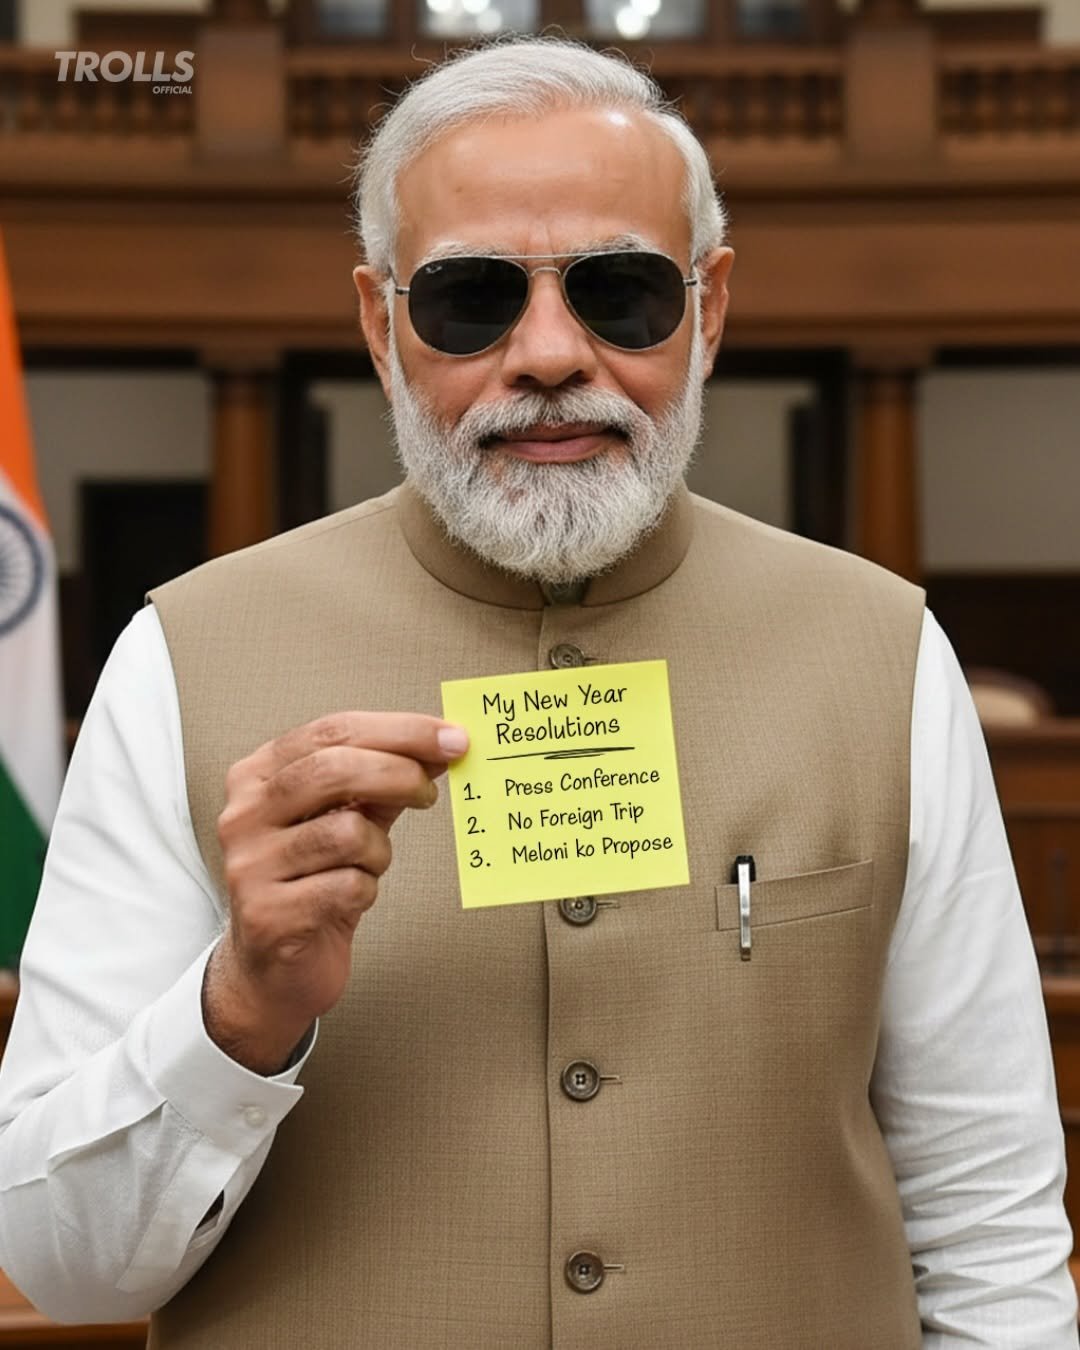 TROLLS
OFFICIAL
My New Year
Resolutions
1. Press Conference
2. No Foreign Trip
3. Meloni ko Propose